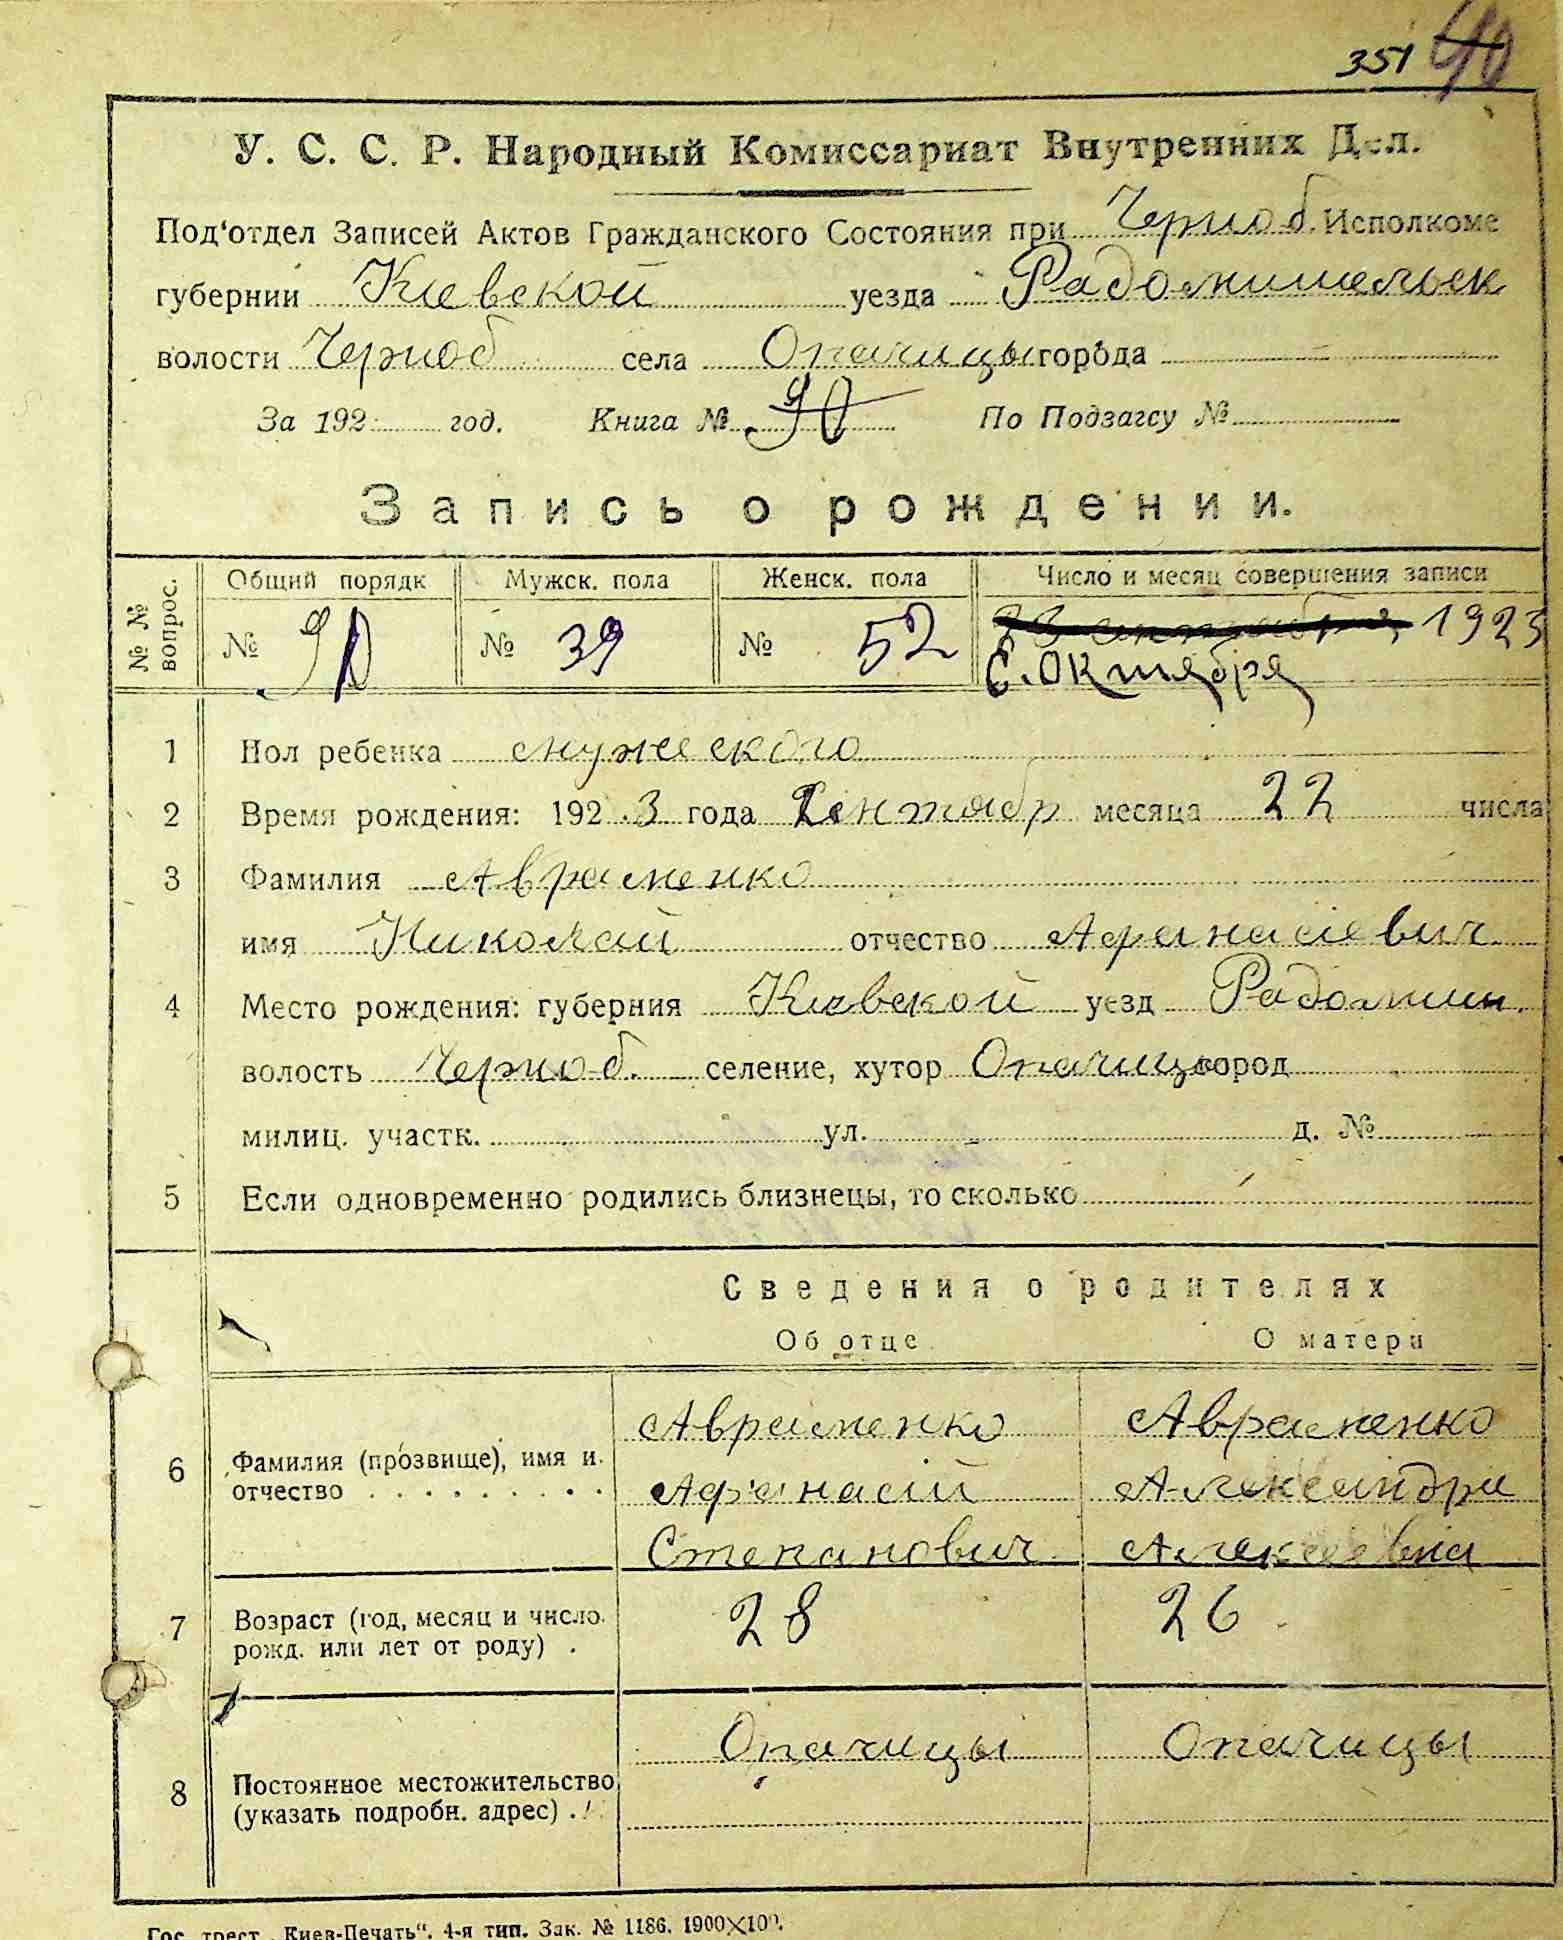 351 40
У. С. С. Р. Народный Комиссариат Внутренних Дел.
Под'отдел Записей Актов Гражданского Состояния при Черноб. Исполкоме
губернии Киевской уезда Радомишельск
волости Черноб села Опачицы города –
За 192 год. Книга № 90 По Подзагсу №
Запись о рождении.
№ № вопрос. Общий порядк Мужск. пола Женск. пола Число и месяц совершения записи
№ 90 № 39 № 52 23 сентября 1923
6. Октября
1 Пол ребенка мужеского
2 Время рождения: 192 3 года Сентябр месяца 22 числа
3 Фамилия Авраменко
имя Николай отчество Афанасиевич
4 Место рождения: губерния Киевской уезд Радомиш.
волость Черноб. селение, хутор Опачицы город
милиц. участк. ул. – д. №
5 Если одновременно родились близнецы, то сколько
Сведения о родителях
Об отце О матери
Авраменко Авраменко
6 Фамилия (прозвище), имя и отчество Афанасий Александра
Степанович Алексеевна
7 Возраст (год, месяц и число рожд. или лет от роду) 28 26
Опачицы Опачицы
8 Постоянное местожительство (указать подробн. адрес)
Гос. трест „Киев-Печать“. 4-я тип. Зак. № 1186. 1900×100.